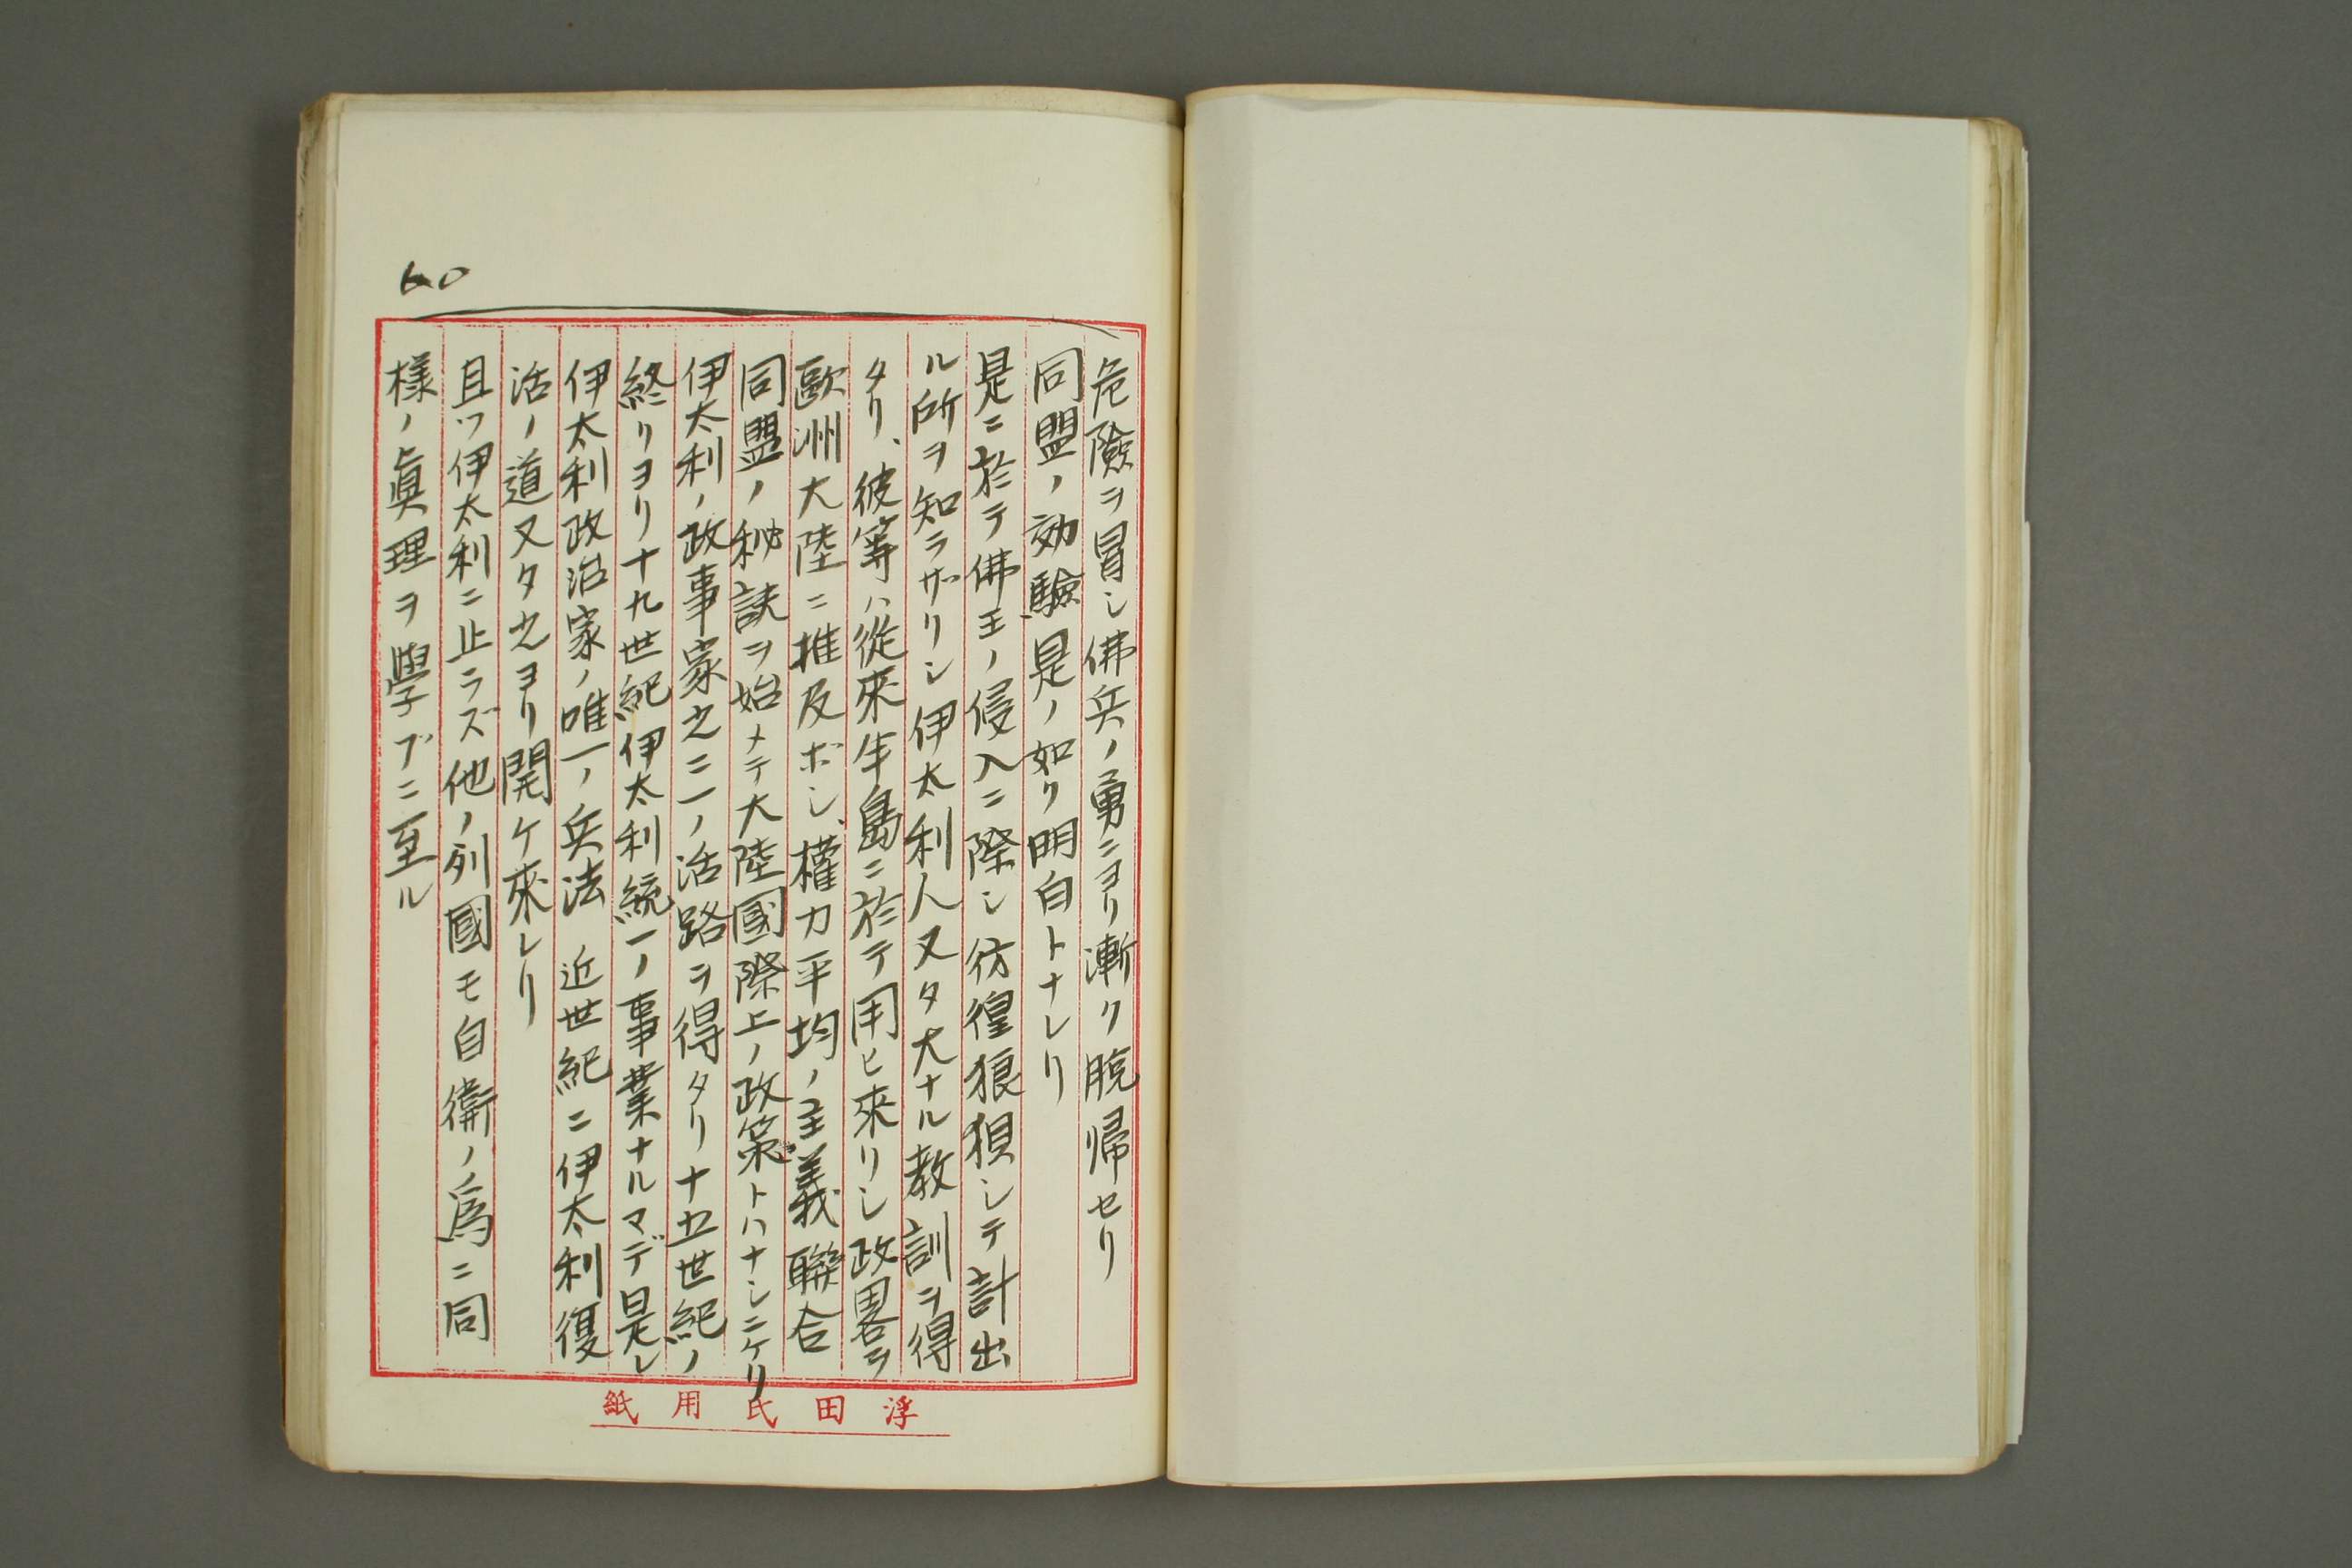 60
危險ヲ冒シ佛兵ノ勇ニヨリ漸ク脱帰セリ
同盟ノ効驗是ノ如ク明白トナレリ
是ニ於テ佛王ノ侵入ニ際シ彷徨狼狽シテ計出
ル所ヲ知ラザリシ伊太利人又タ大ナル教訓ヲ得
タリ、彼等ハ從來半島ニ於テ用ヒ來リシ政畧ヲ
歐洲大陸ニ推及ボシ、權力平均ノ主義聯合
同盟ノ秘訣ヲ始メテ大陸國際上ノ政策トハナシニケリ
伊太利ノ政事家之ニ一ノ活路ヲ得タリ十五世紀ノ
終リヨリ十九世紀伊太利統一ノ事業ナルマデ是レ
伊太利政治家ノ唯一ノ兵法 近世紀ニ伊太利復
活ノ道又タ之ヨリ開ケ來レリ
且ツ伊太利ニ止ラズ他ノ列國モ自衛ノ爲ニ同
樣ノ眞理ヲ學ブニ至ル
浮田氏用紙